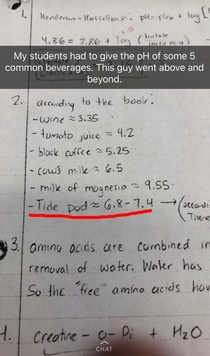 1. Henderson-Hasselbalch: pH = pKa + log
4.36 = 3.86 + log
My students had to give the pH of some 5 common beverages. This guy went above and beyond.
2. according to the book:
- wine ≈ 3.35
- tomato juice ≈ 4.2
- black coffee ≈ 5.25
- cow's milk ≈ 6.5
- milk of magnesia ≈ 9.55
- Tide pod ≈ 6.8-7.4 → (accordi
There
3. amino acids are combined in
removal of water. Water has
So the "free" amino acids hav
4. creatine - - Pi + H2O
CHAT